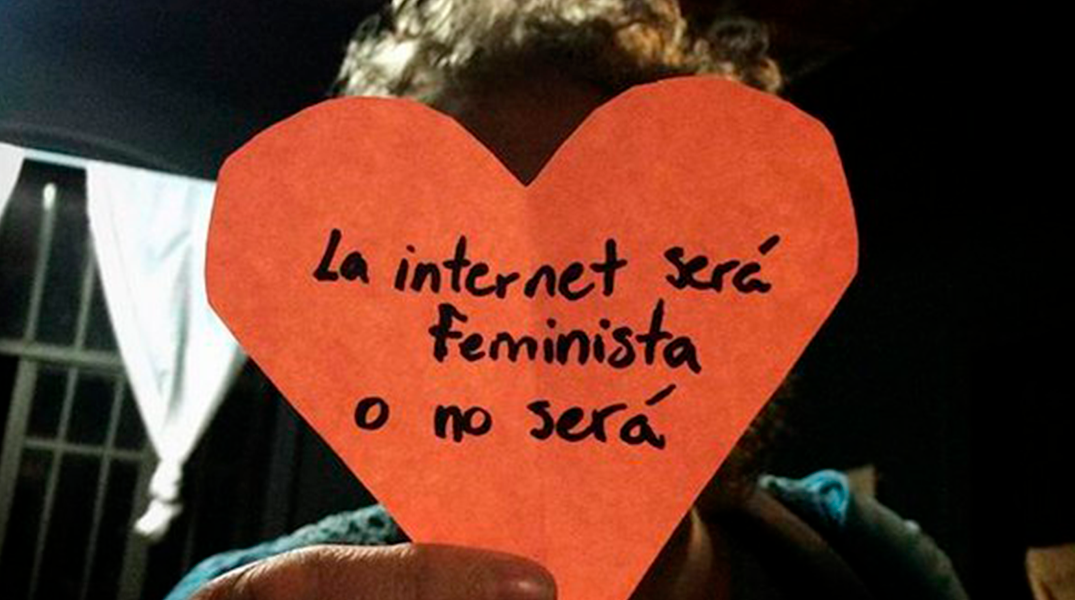 La internet será
feminista
o no será